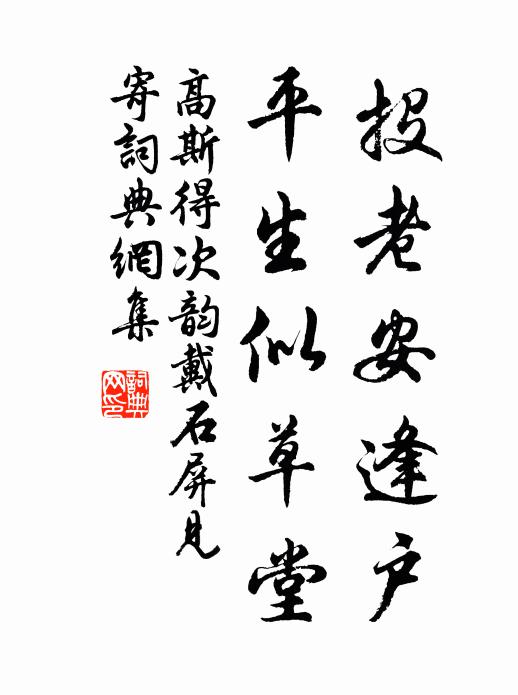 投老安逢户
平生似草堂
高斯得次韵戴石屏見
寄詞典網集
詞典
网印